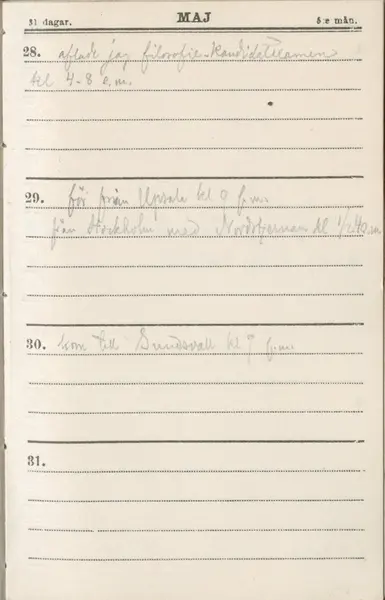 31 dagar. MAJ 5:e mån.
28. aflade jag filosofie-kandidatexamen
kl 4-8 e.m.
29. för från Upsala kl 9 f.m.
från Stockholm med Nordstjernan kl
30. kom till Sundsvall kl 9 f.m.
31.